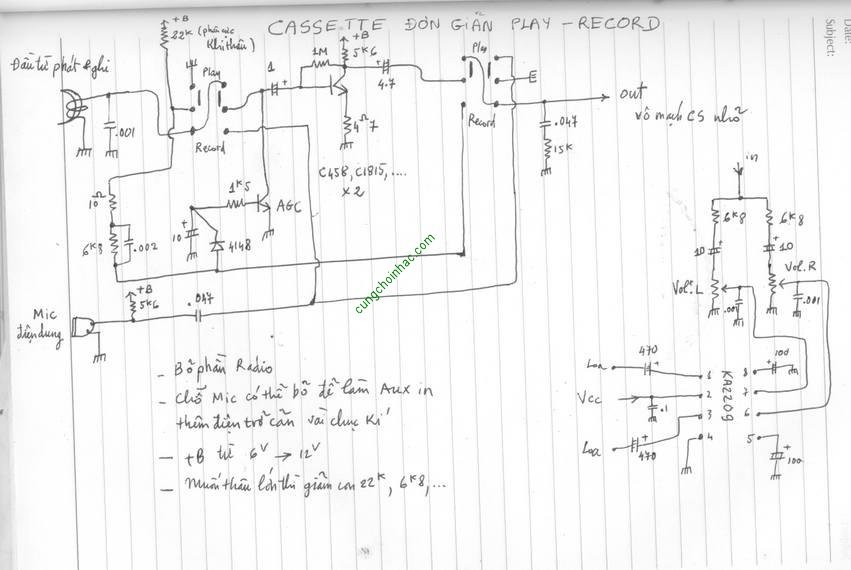 CASSETTE ĐƠN GIẢN PLAY - RECORD
Date:
Subject:
+B
22K (phân cực
Khi thâu)
Đầu từ phát & ghi
.001
Play
Record
1
+
1M
+B
5K6
4.7
+
4Ω7
C458, C1815, ....
x2
Play
Record
E
out
vô mạch CS nhỏ
.047
15K
10Ω
6K8
.002
1K5
AGC
10
+
4148
+B
5K6
.047
Mic
điện dung
cungchoinhac.com
in
6K8
6K8
10
+
10
+
Vol.L
Vol.R
.001
.001
Loa
470
+
Vcc
.1
Loa
470
+
KA2209
1
2
3
4
8
7
6
5
100
+
100
+
- Bỏ phần Radio
- Chỗ Mic có thể bỏ để làm Aux in
thêm điện trở cản vài chục Ki
- +B từ 6V → 12V
- Muốn thâu lớn thì giảm con 22K, 6K8, ...